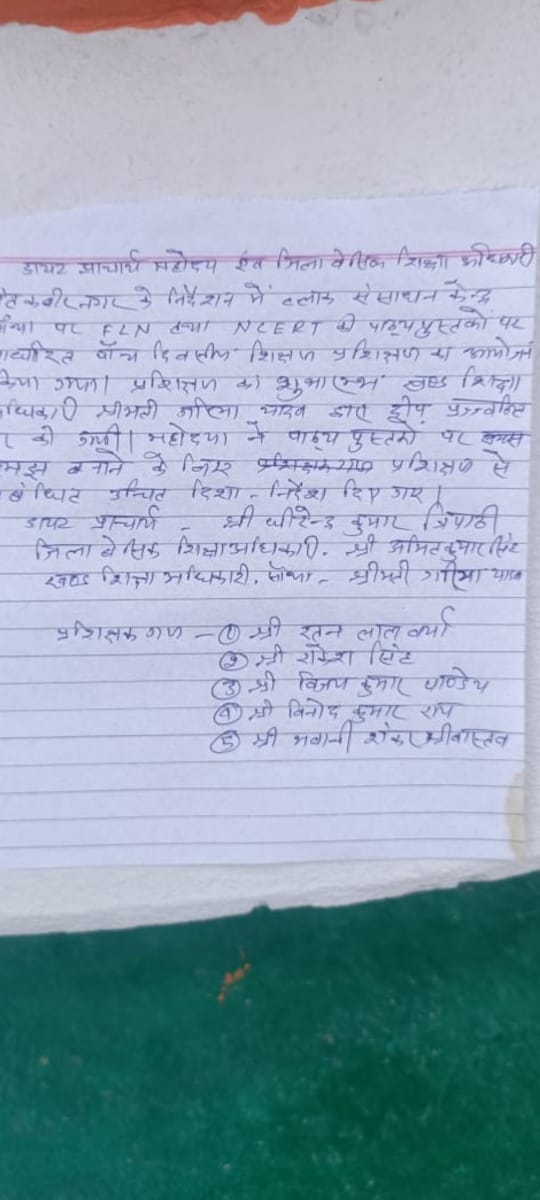 डायट प्राचार्य महोदय एवं जिला बेसिक शिक्षा अधिकारी
त कबीर नगर के निर्देशन में ब्लाक संसाधन केन्द्र
पर FLN तथा NCERT की पाठ्यपुस्तकों पर
धारित पाँच दिवसीय शिक्षण प्रशिक्षण का आयोजन
किया गया। प्रशिक्षण का शुभारम्भ खण्ड शिक्षा
धिकारी श्रीमती यादव द्वारा द्वीप प्रज्वलित
र की गयी। महोदया ने पाठ्य पुस्तकों पर
मझ बनाने के लिए प्रशिक्षण से
बंधित उचित दिशा-निर्देश दिए गए।
डायट प्राचार्य - श्री धीरेन्द्र कुमार त्रिपाठी
जिला बेसिक शिक्षा अधिकारी. श्री अमित कुमार सिंह
खण्ड शिक्षा अधिकारी. - श्रीमती गरिमा याद
प्रशिक्षक गण - ① श्री रतन लाल वर्मा
② श्री राकेश सिंह
③ श्री विजय कुमार पाण्डेय
④ श्री विनोद कुमार राय
⑤ श्री भवानी शंकर श्रीवास्तव